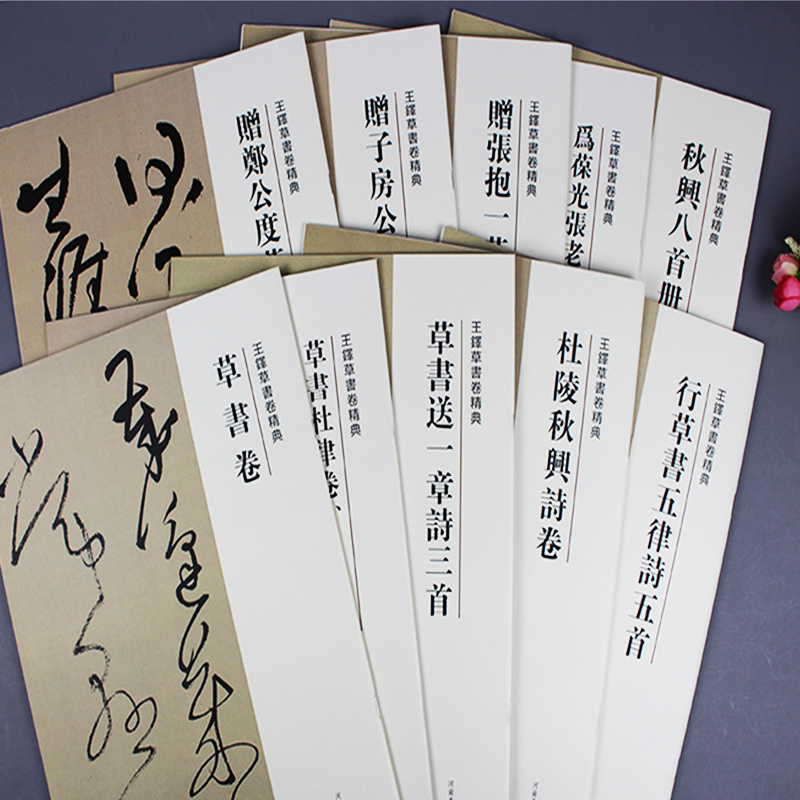 贈鄭公度
王鐸草書卷精典
贈子房公
王鐸草書卷精典
贈張抱一
王鐸草書卷精典
爲葆光張老
王鐸草書卷精典
秋興八首册
王鐸草書卷精典
草書卷
王鐸草書卷精典
草書杜律卷
王鐸草書卷精典
草書送一章詩三首
王鐸草書卷精典
杜陵秋興詩卷
王鐸草書卷精典
行草書五律詩五首
王鐸草書卷精典
河
河南